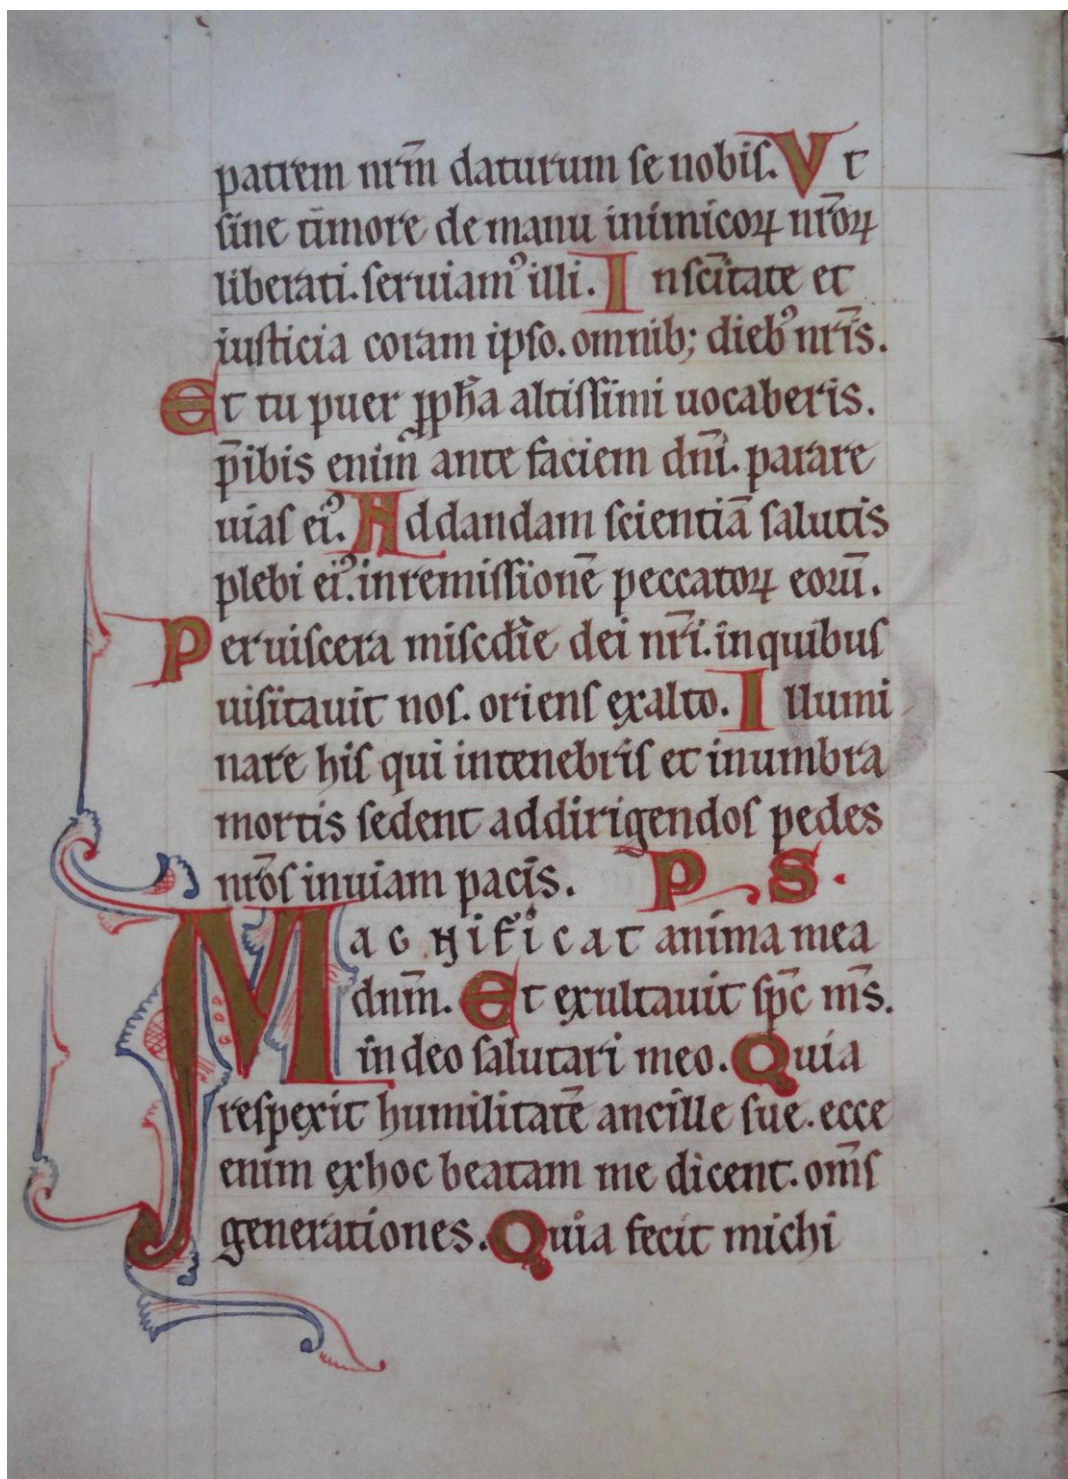 patrem nr̄m daturum se nobis. Vt
sine timore de manu inimicoꝝ nr̄oꝝ
liberati. seruiamꝰ illi. In sc̄itate et
iusticia coram ipso. omnib; diebꝰ nr̄is.
Et tu puer ꝓph̄a altissimi uocaberis.
p̄ibis enim ante faciem dn̄i. parare
uias eiꝰ. Ad dandam scientiā salutis
plebi eiꝰ. in remissionē peccatoꝝ eorū.
Per uiscera misc̄die dei nr̄i. in quibus
uisitauit nos. oriens ex alto. Illumi
nare his qui in tenebris et in umbra
mortis sedent ad dirigendos pedes
nr̄os in uiam pacis. PS.
Magnificat anima mea
dnm̄. Et exultauit sp̄c m̄s.
in deo salutari meo. Quia
respexit humilitatē ancille sue. ecce
enim ex hoc beatam me dicent. om̄s
generationes. Quia fecit michi